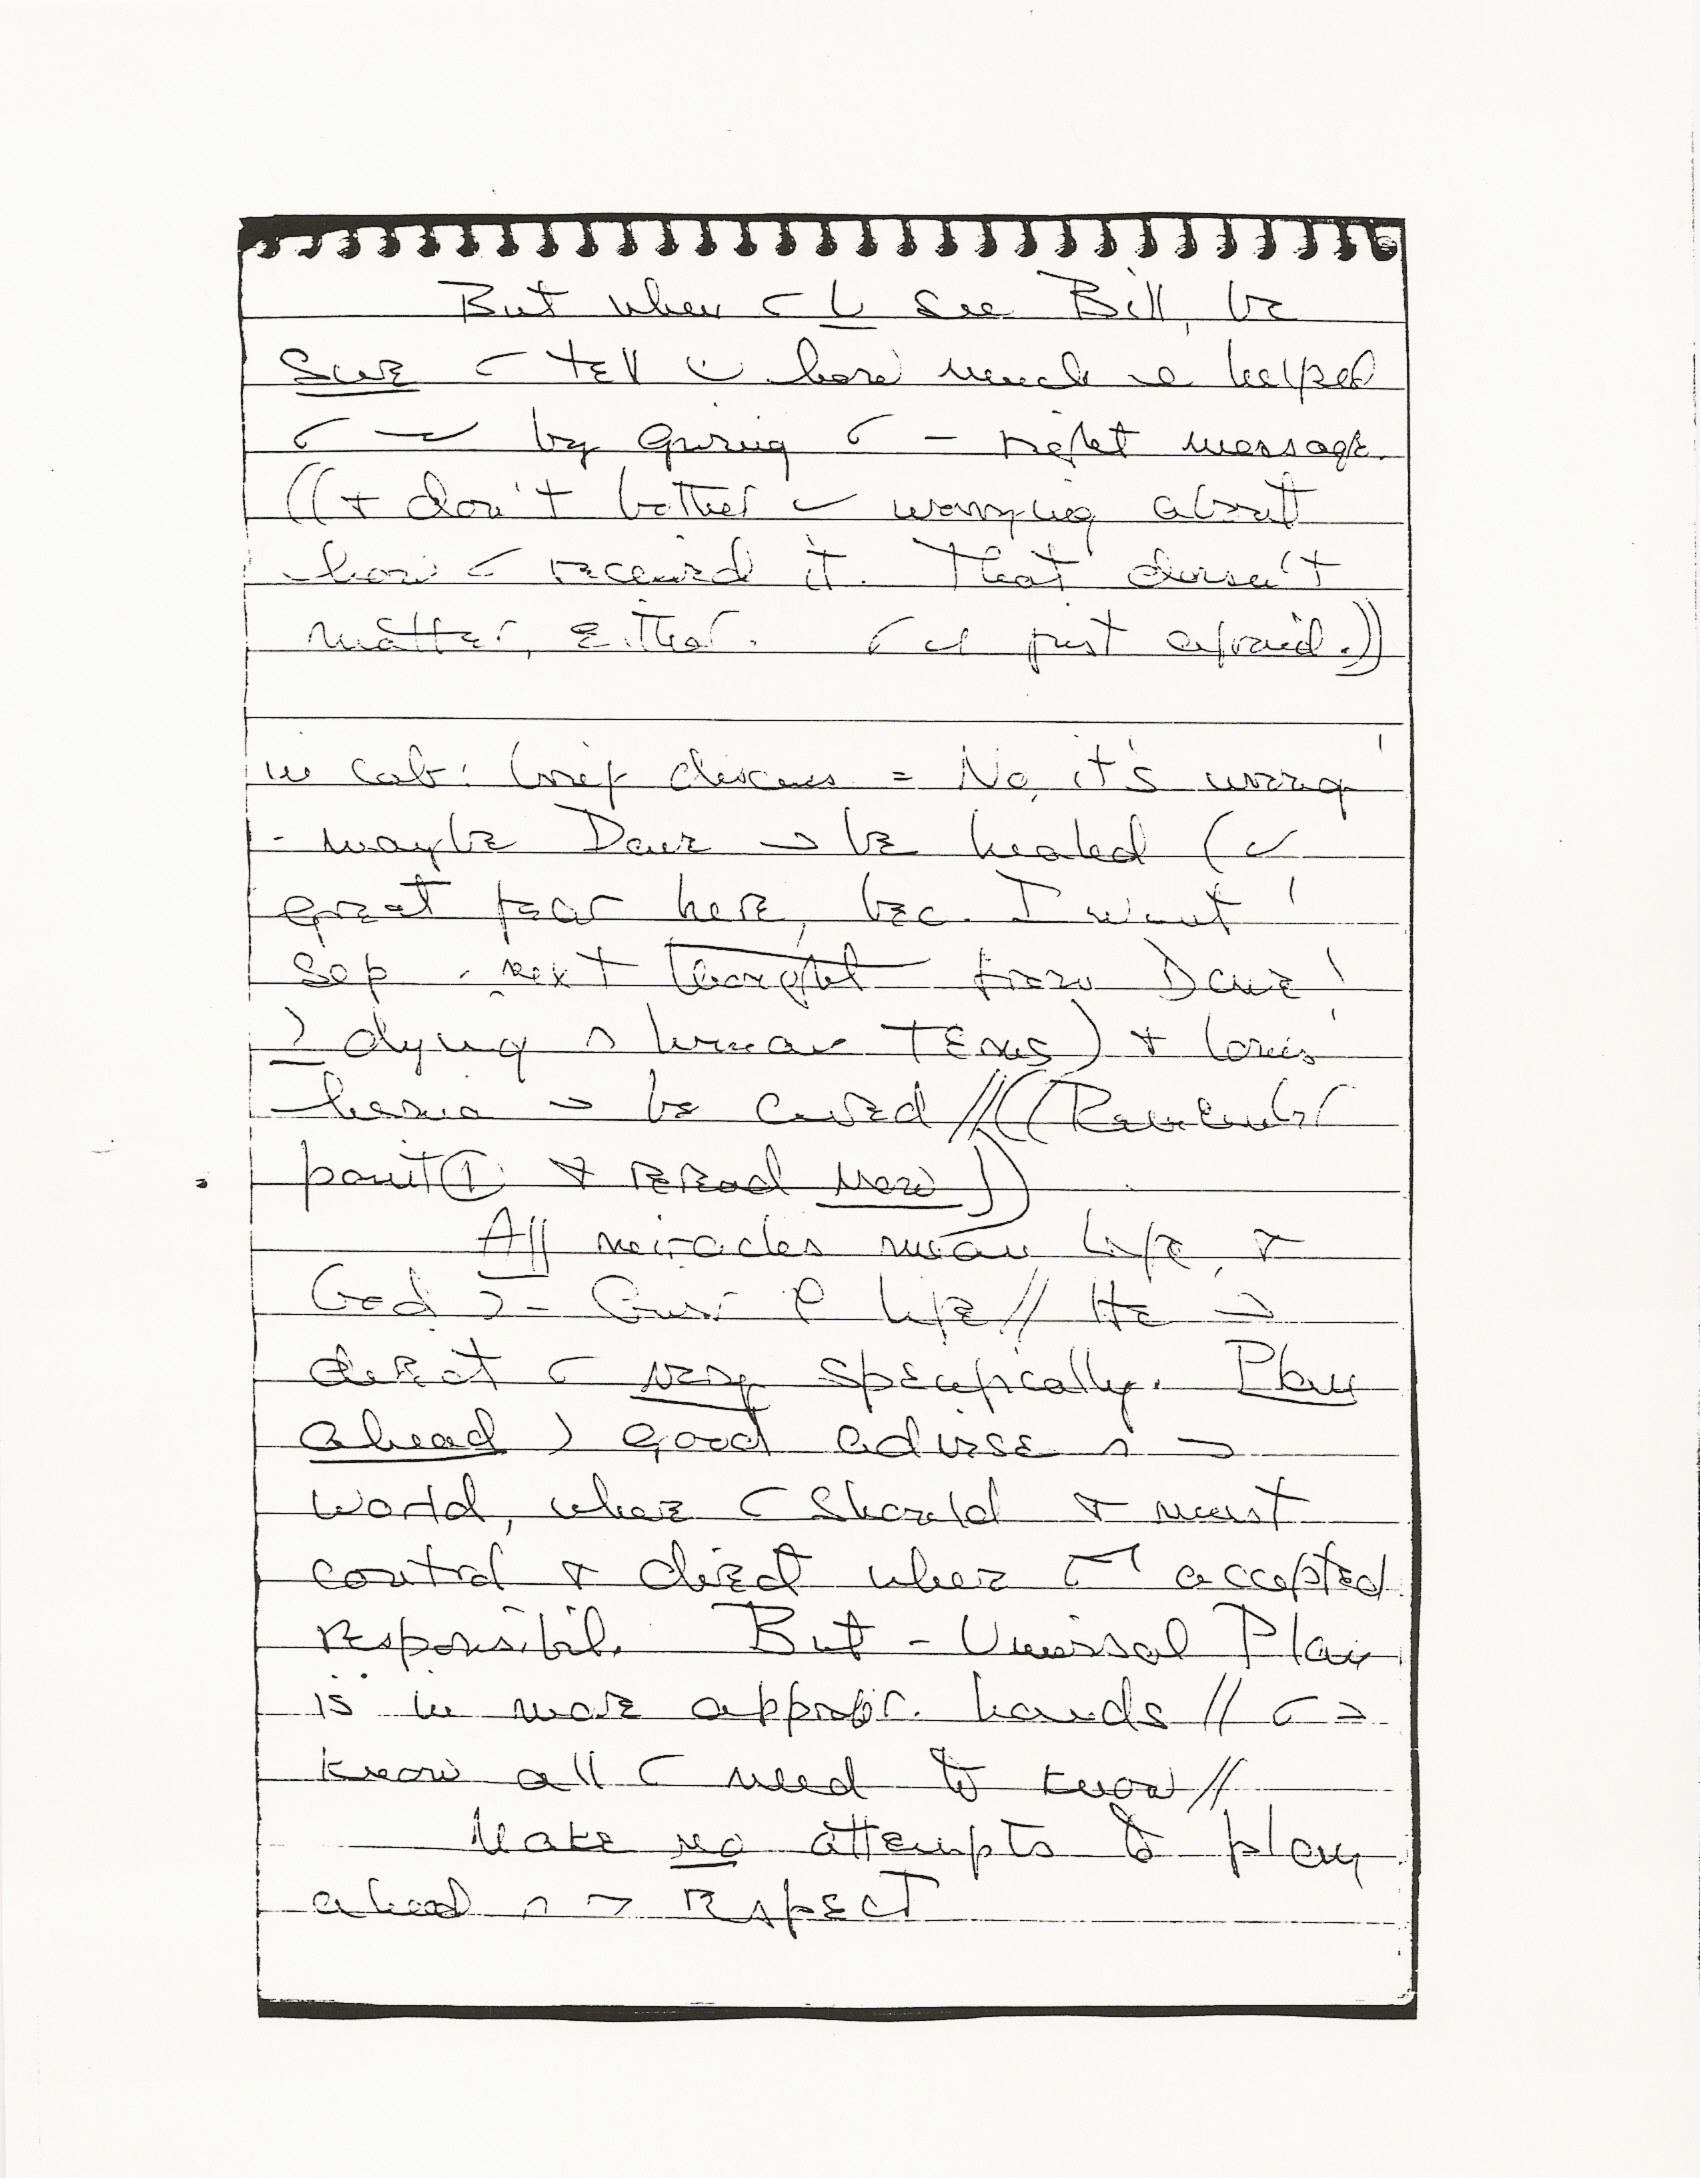 But when see Bill, be
sure tell how much helped
by giving – right message.
((+ don't bother worrying about
how received it. That doesn't
matter, either. just afraid.))
in cab: brief discuss = No, it's wrong
- maybe Dave be healed (
great fear here, bec. I want
sep. next thought from Dave!
dying human terms) +
hernia be cured // ((Remember
point ① + reread now))
All miracles mean life, +
God – life // He
direct very specifically. Plan
ahead good advise
world, where should + must
control + direct where accepted
responsibil. But – Universal Plan
is in more appropr. hands //
know all need to know //
Make no attempts to plan
ahead respect